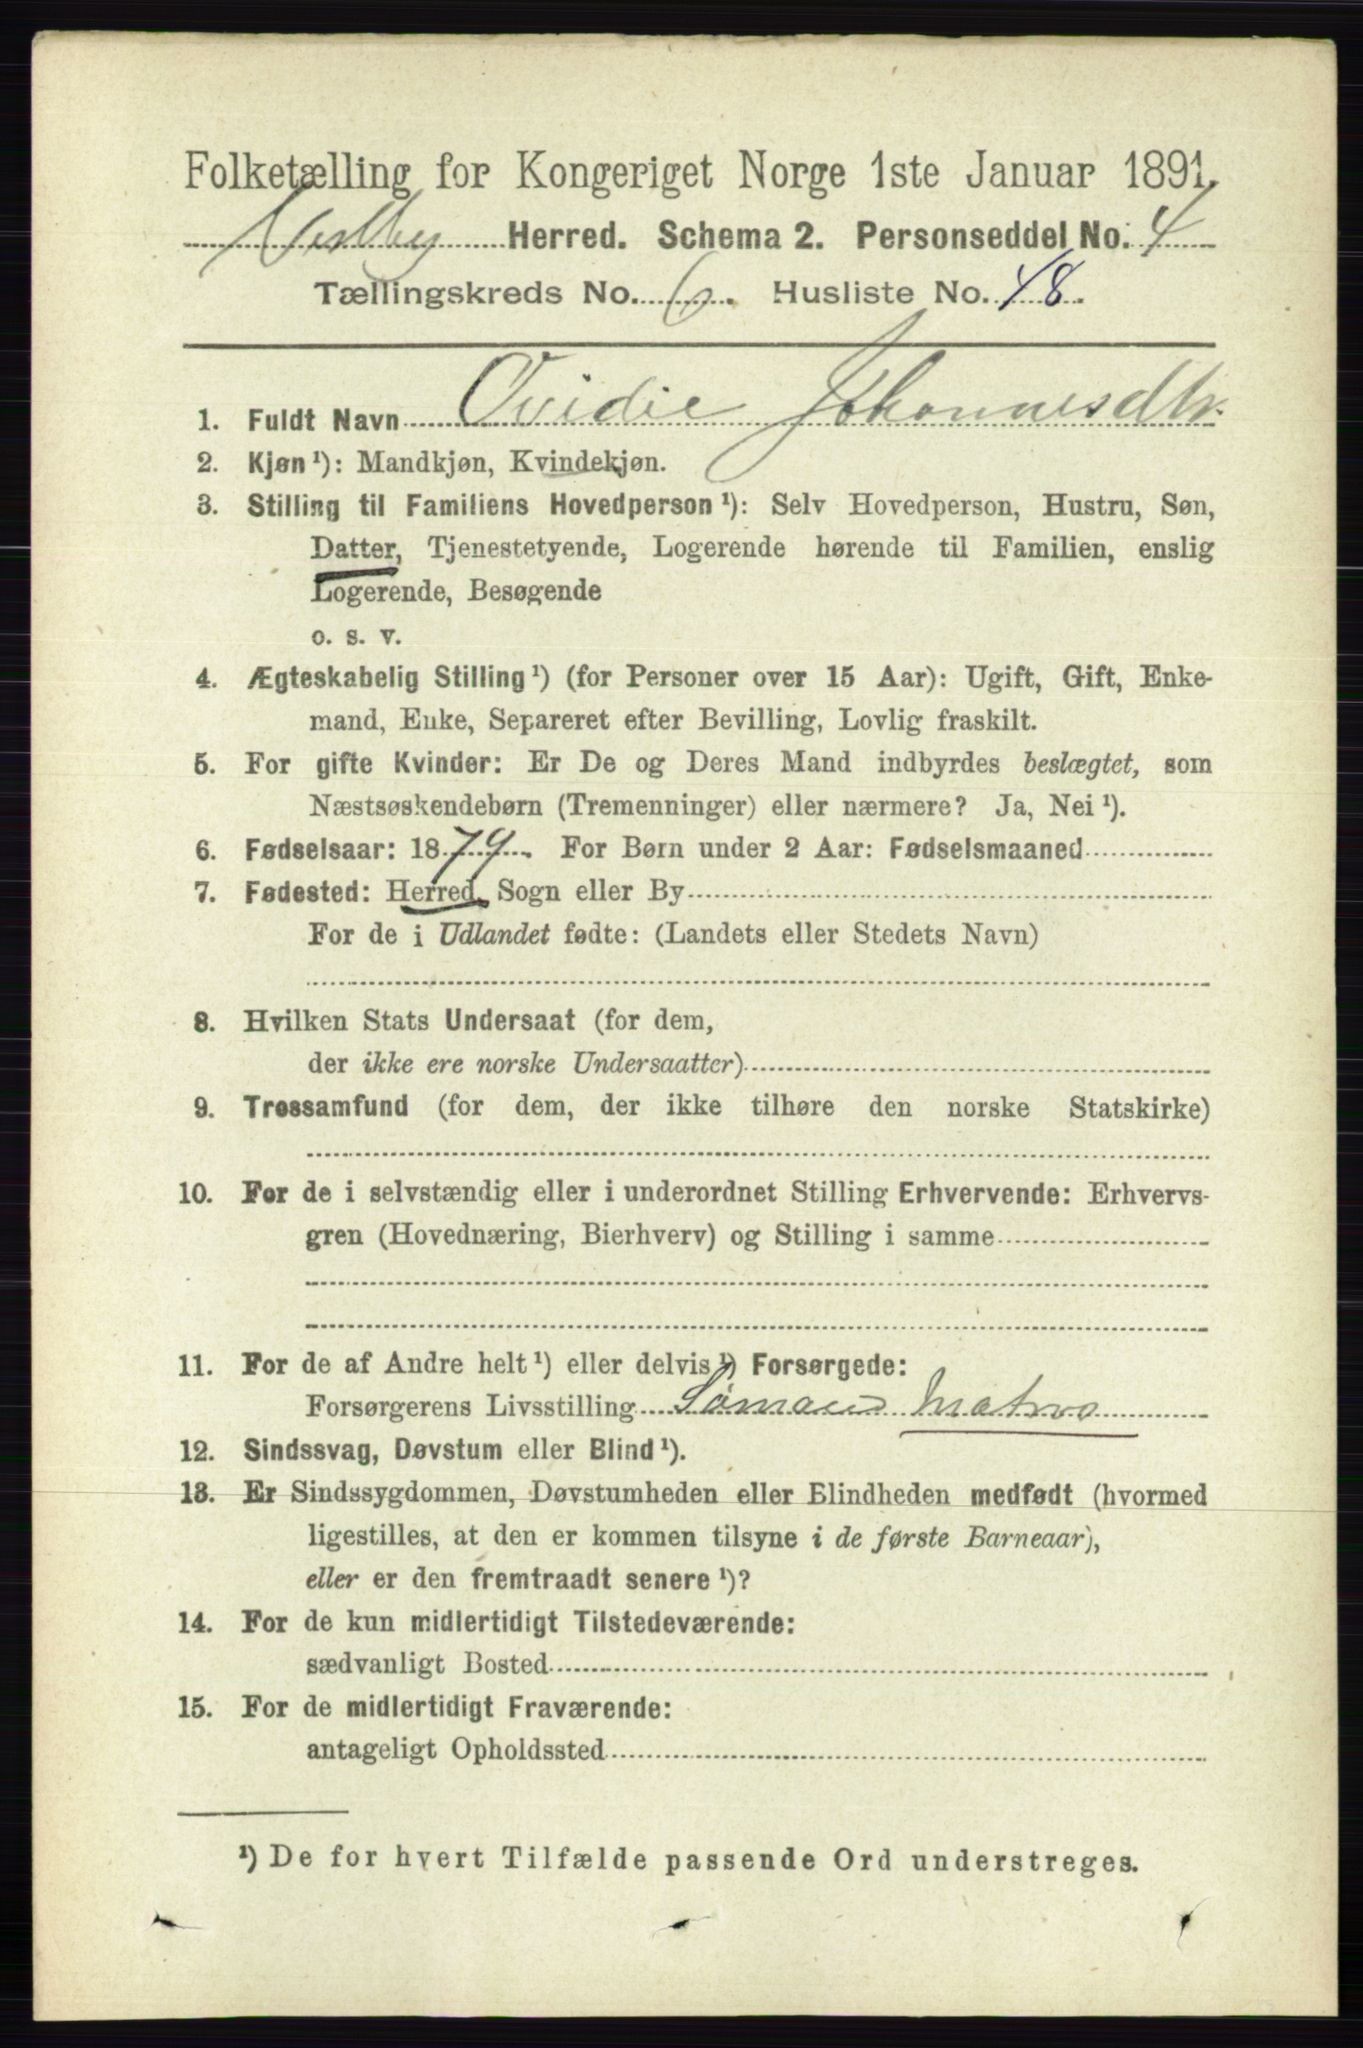 Folketælling for Kongeriget Norge 1ste Januar 1891.
Vestby Herred. Schema 2. Personseddel No. 4
Tællingskreds No. 6. Husliste No. 48.
1. Fuldt Navn Ovidie Johannesdtr.
2. Kjøn¹): Mandkjøn, Kvindekjøn.
3. Stilling til Familiens Hovedperson¹): Selv Hovedperson, Hustru, Søn,
Datter, Tjenestetyende, Logerende hørende til Familien, enslig
Logerende, Besøgende
o. s. v.
4. Ægteskabelig Stilling¹) (for Personer over 15 Aar): Ugift, Gift, Enke-
mand, Enke, Separeret efter Bevilling, Lovlig fraskilt.
5. For gifte Kvinder: Er De og Deres Mand indbyrdes beslægtet, som
Næstsøskendebørn (Tremenninger) eller nærmere? Ja, Nei¹).
6. Fødselsaar: 1879. For Børn under 2 Aar: Fødselsmaaned
7. Fødested: Herred, Sogn eller By
For de i Udlandet fødte: (Landets eller Stedets Navn)
8. Hvilken Stats Undersaat (for dem,
der ikke ere norske Undersaatter)
9. Trossamfund (for dem, der ikke tilhøre den norske Statskirke)
10. For de i selvstændig eller i underordnet Stilling Erhvervende: Erhvervs-
gren (Hovednæring, Bierhverv) og Stilling i samme
11. For de af Andre helt¹) eller delvis¹) Forsørgede:
Forsørgerens Livsstilling Sømand Matros
12. Sindssvag, Døvstum eller Blind¹).
13. Er Sindssygdommen, Døvstumheden eller Blindheden medfødt (hvormed
ligestilles, at den er kommen tilsyne i de første Barneaar),
eller er den fremtraadt senere¹)?
14. For de kun midlertidigt Tilstedeværende:
sædvanligt Bosted
15. For de midlertidigt Fraværende:
antageligt Opholdssted
¹) De for hvert Tilfælde passende Ord understreges.